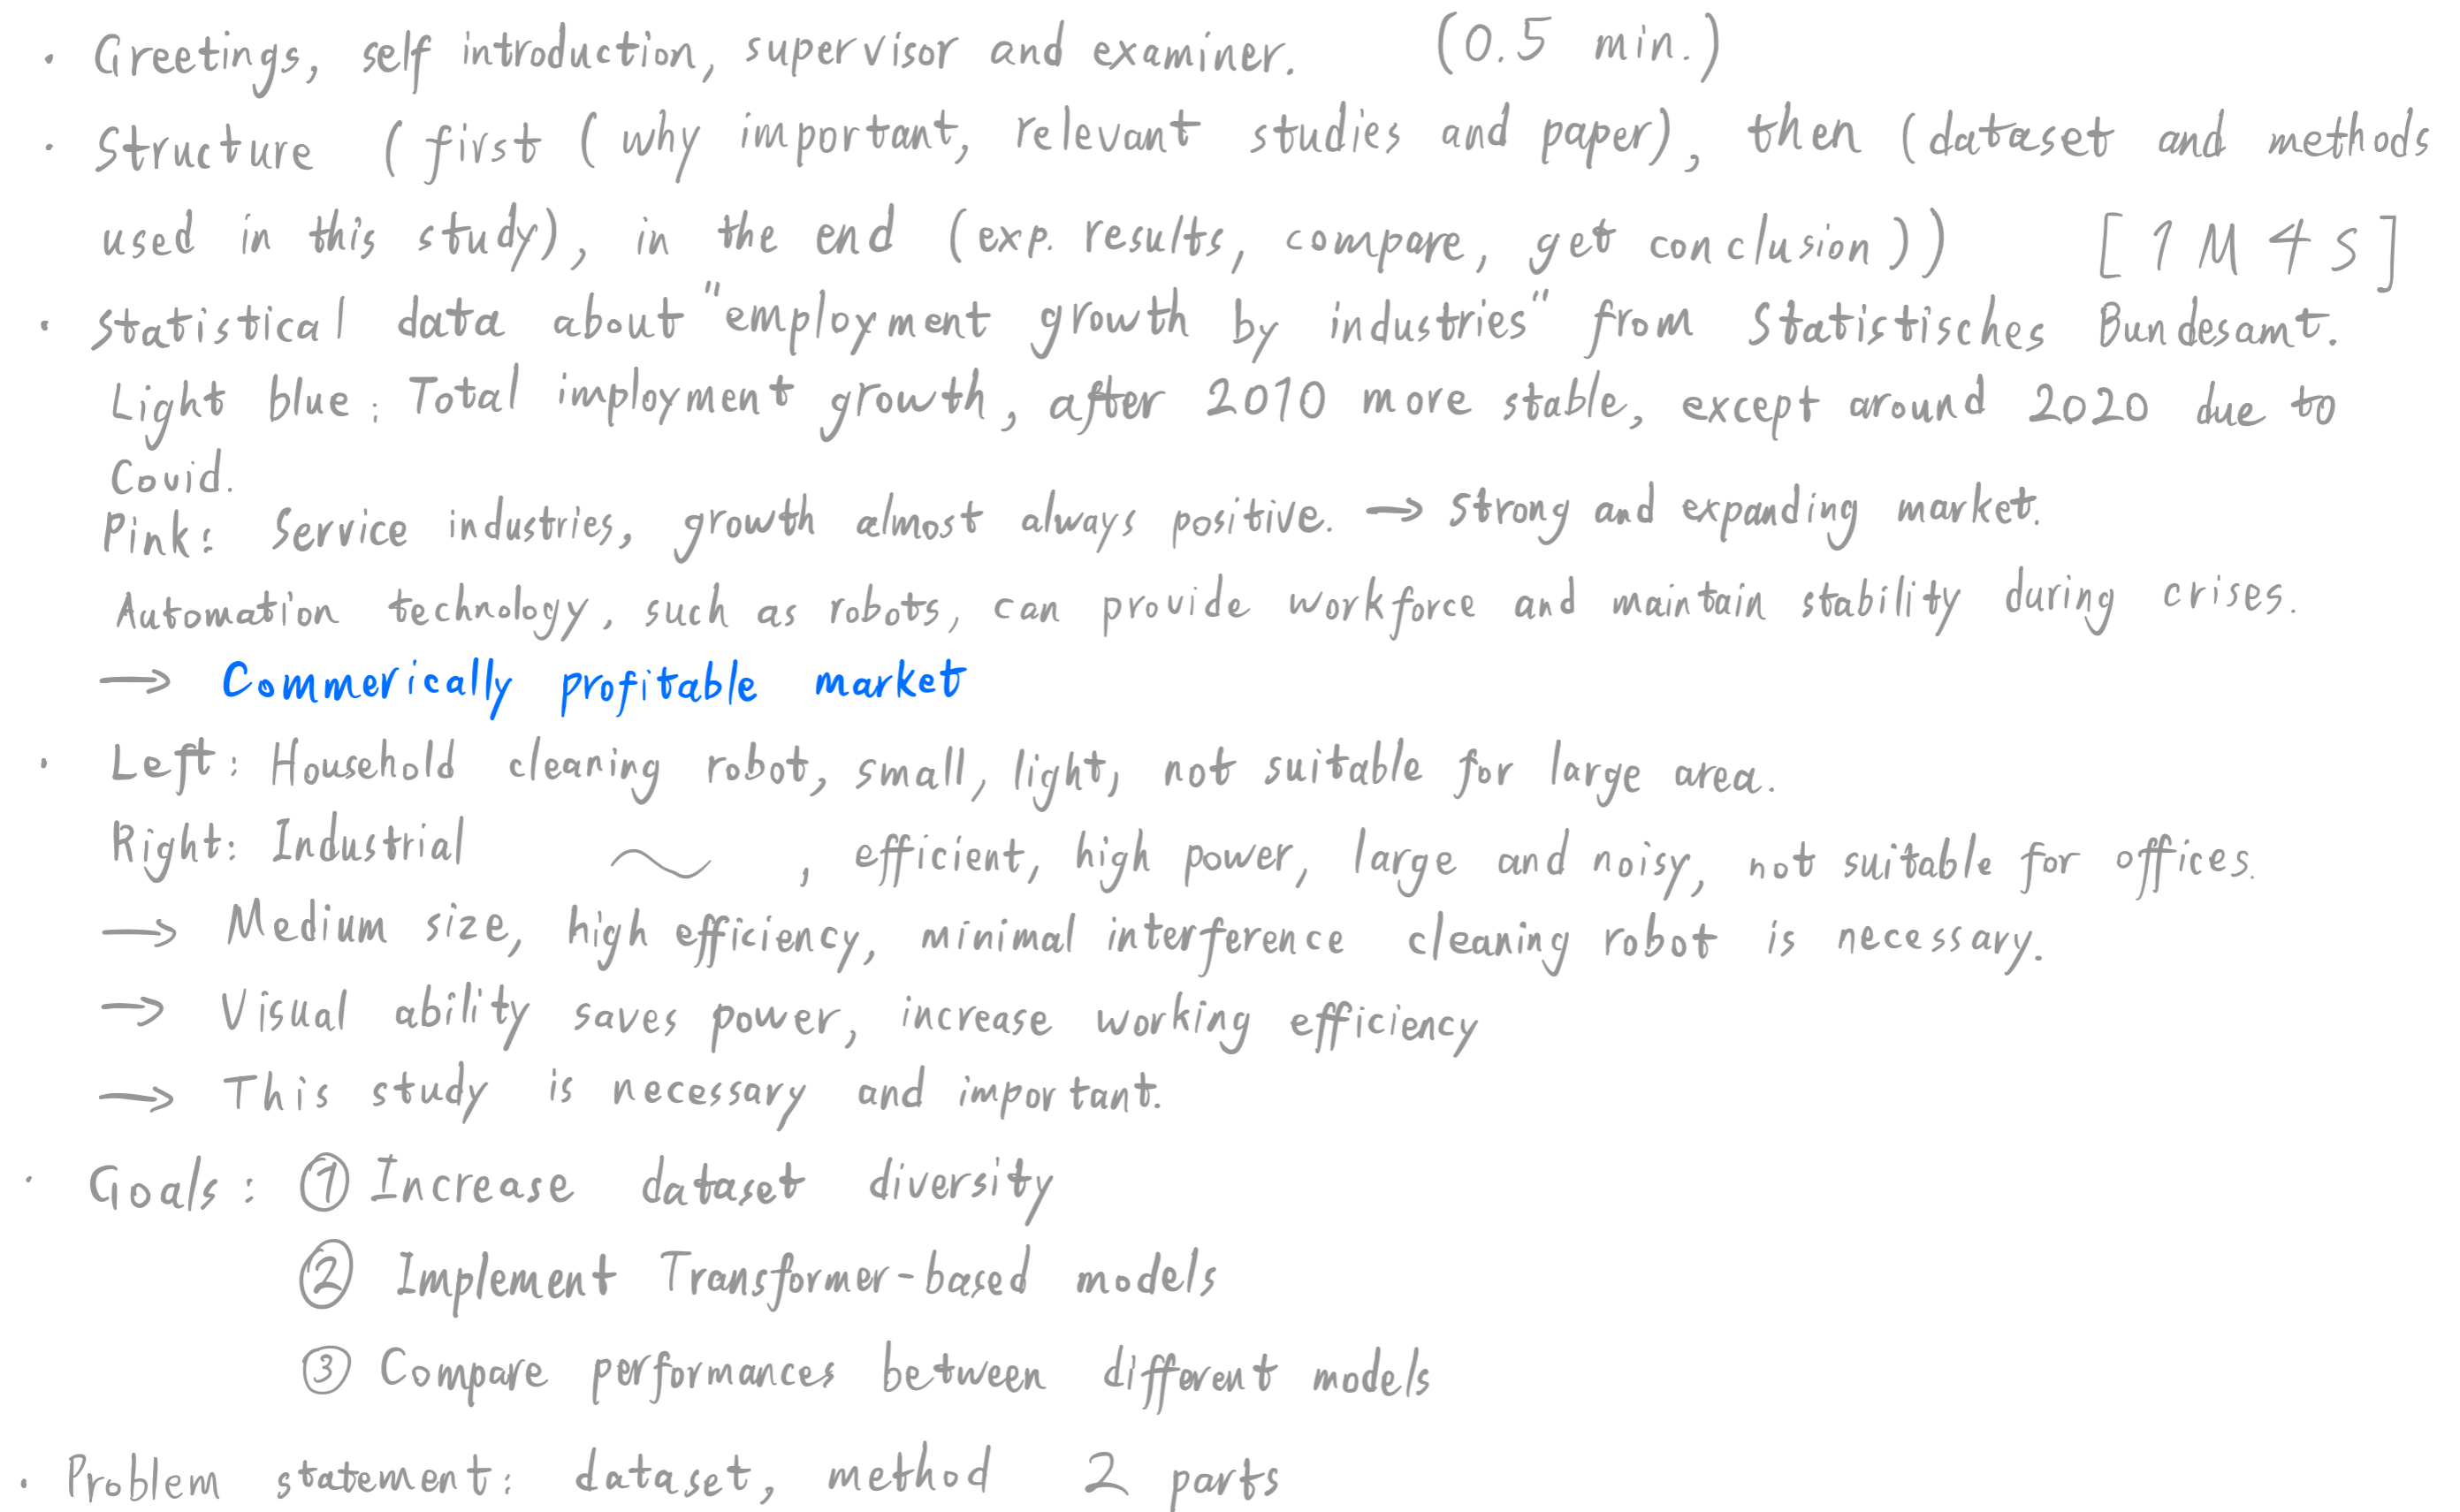 · Greetings, self introduction, supervisor and examiner. (0.5 min.)
· Structure (first (why important, relevant studies and paper), then (dataset and methods
used in this study), in the end (exp. results, compare, get conclusion)) [1 M 4 S]
· Statistical data about "employment growth by industries" from Statistisches Bundesamt.
Light blue: Total imployment growth, after 2010 more stable, except around 2020 due to
Covid.
Pink: Service industries, growth almost always positive. → Strong and expanding market.
Automation technology, such as robots, can provide workforce and maintain stability during crises.
→ Commerically profitable market
· Left: Household cleaning robot, small, light, not suitable for large area.
Right: Industrial ~ , efficient, high power, large and noisy, not suitable for offices.
→ Medium size, high efficiency, minimal interference cleaning robot is necessary.
→ Visual ability saves power, increase working efficiency
→ This study is necessary and important.
· Goals: ① Increase dataset diversity
② Implement Transformer-based models
③ Compare performances between different models
· Problem statement: dataset, method 2 parts